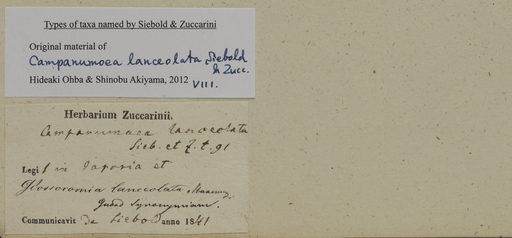 Types of taxa named by Siebold & Zuccarini
Original material of
Campanumoea lanceolata Siebold
& Zucc.
Hideaki Ohba & Shinobu Akiyama, 2012
VIII.
Herbarium Zuccarinii.
Campanumaea lanceolata
Sieb. et Z. t. 91
Legi in Japonia et
Glossocomia lanceolata
quoad synonymiam.
Communicavit de Siebold anno 1841